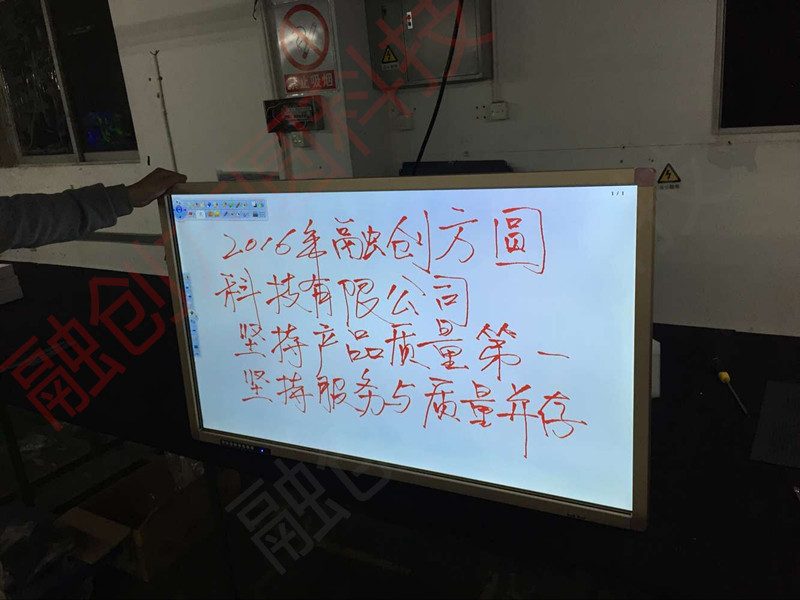 禁止吸烟
1 / 1
2016年融创方圆
科技有限公司
坚持产品质量第一
坚持服务与质量并存
融创方圆科技
融创